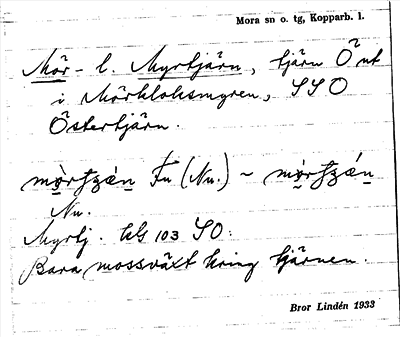 Mora sn o. tg, Kopparb. l.
Mör- l. Myrtjärn, tjärn Ö nt
i Mörkloksmyren, SSO
Östertjärn.
Fu (Nu.) ~
Nu.
Myrtj. kls 103 SO:
Bara mossväxt kring tjärnen.
Bror Lindén 1933